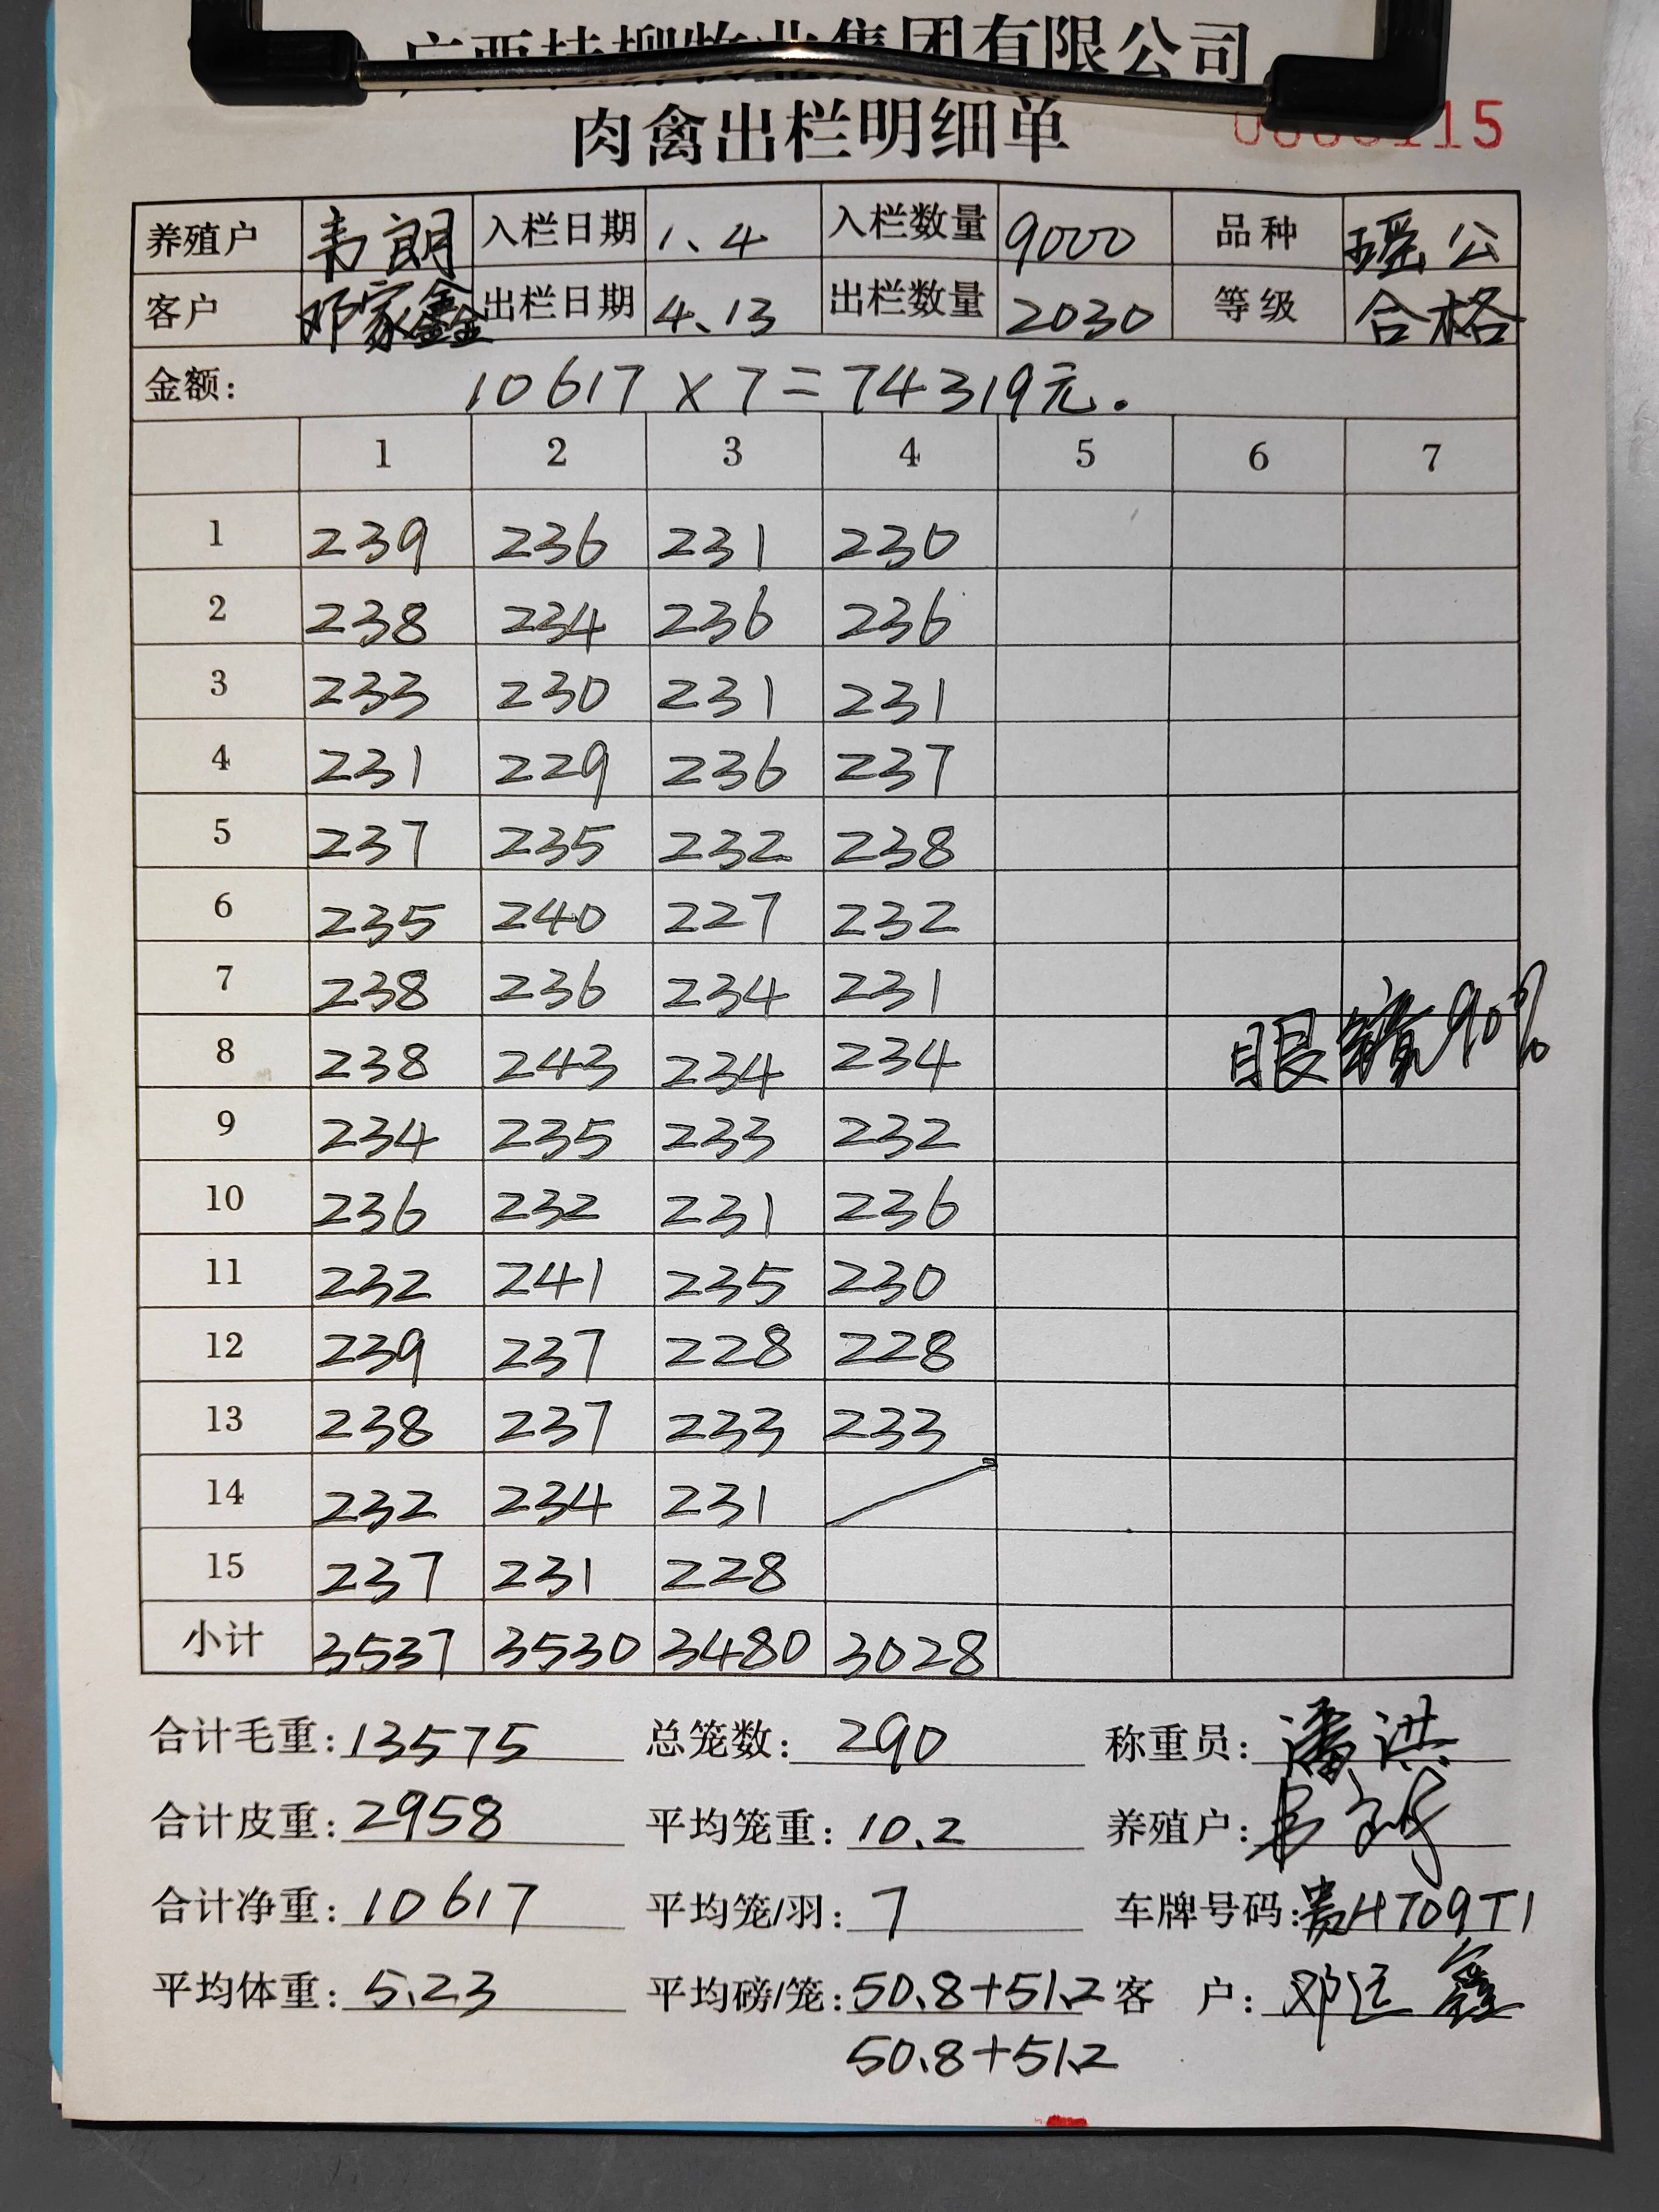 有限公司
肉禽出栏明细单
115
养殖户 韦朗 入栏日期 1.4 入栏数量 9000 品种 瑶公
客户 邓家鑫 出栏日期 4.13 出栏数量 2030 等级 合格
金额: 10617×7=74319元.
1 2 3 4 5 6 7
1 239 236 231 230
2 238 234 236 236
3 233 230 231 231
4 231 229 236 237
5 237 235 232 238
6 235 240 227 232
7 238 236 234 231
8 238 243 234 234 眼镜90%
9 234 235 233 232
10 236 232 231 236
11 232 241 235 230
12 239 237 228 228
13 238 237 233 233
14 232 234 231
15 237 231 228
小计 3537 3530 3480 3028
合计毛重: 13575 总笼数: 290 称重员: 潘洪
合计皮重: 2958 平均笼重: 10.2 养殖户:
合计净重: 10617 平均笼/羽: 7 车牌号码: 贵HT09T1
平均体重: 5.23 平均磅/笼: 50.8+51.2 客 户: 邓
50.8+51.2